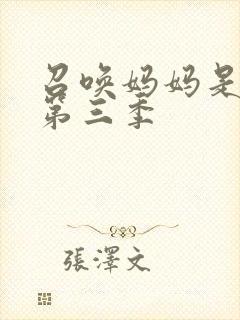 召唤妈妈是
第三季
張澤文